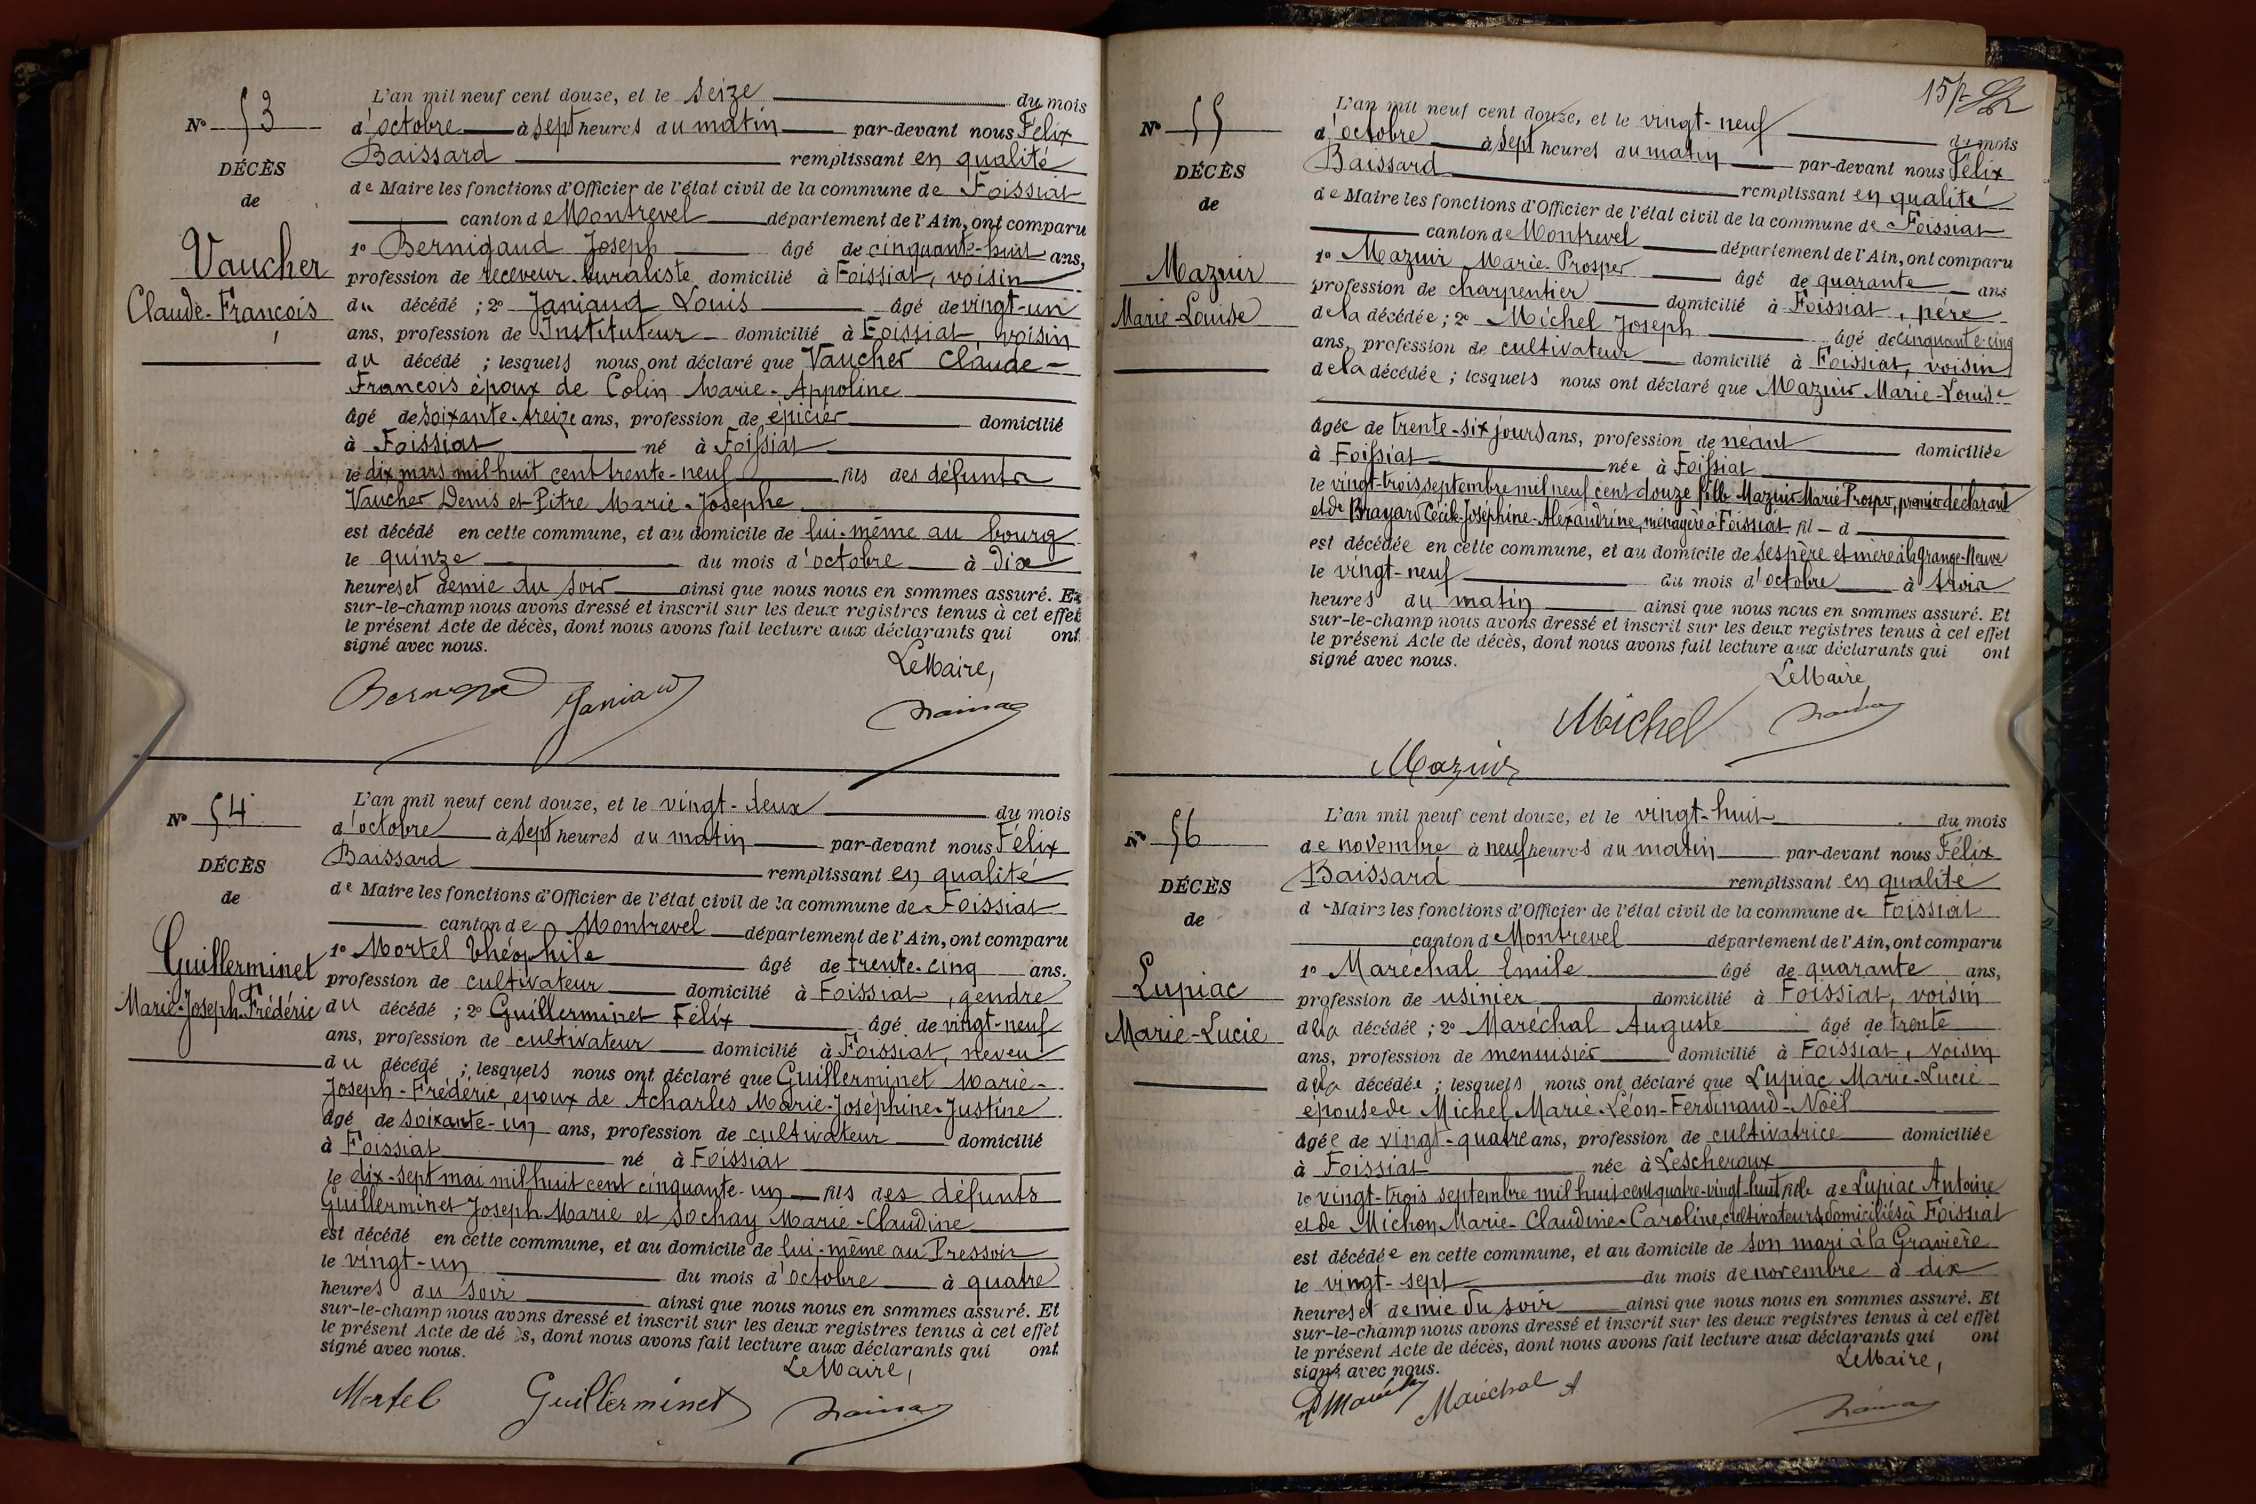 Nº 53
DÉCÈS
de
Vaucher
Claude-François
L'an mil neuf cent douze, et le seize du mois
d'octobre à sept heures du matin par-devant nous Félix
Baissard remplissant en qualité
de Maire les fonctions d'Officier de l'état civil de la commune de Foissiat
canton de Montrevel département de l'Ain, ont comparu
1º Bernigaud Joseph âgé de cinquante-huit ans,
profession de receveur buraliste domicilié à Foissiat, voisin
du décédé ; 2º Janiaud Louis âgé de vingt-un
ans, profession de Instituteur domicilié à Foissiat voisin
du décédé ; lesquels nous ont déclaré que Vaucher Claude-
François époux de Colin Marie-Appoline
âgé de soixante-treize ans, profession de épicier domicilié
à Foissiat né à Foissiat
le dix mars mil huit cent trente-neuf fils des défunts
Vaucher Denis et Pitre Marie-Josephe
est décédé en cette commune, et au domicile de lui-même au bourg
le quinze du mois d'octobre à dix
heures et demie du soir ainsi que nous nous en sommes assuré. Et
sur-le-champ nous avons dressé et inscrit sur les deux registres tenus à cet effet
le présent Acte de décès, dont nous avons fait lecture aux déclarants qui ont
signé avec nous.
Le Maire,
Janiaud
Nº 54
DÉCÈS
de
Guillerminet
Marie-Joseph-Frédéric
L'an mil neuf cent douze, et le vingt-deux du mois
d'octobre à sept heures du matin par-devant nous Félix
Baissard remplissant en qualité
de Maire les fonctions d'Officier de l'état civil de la commune de Foissiat
canton de Montrevel département de l'Ain, ont comparu
1º Mortel Théophile âgé de trente-cinq ans,
profession de cultivateur domicilié à Foissiat, gendre
du décédé ; 2º Guillerminet Félix âgé de vingt-neuf
ans, profession de cultivateur domicilié à Foissiat, neveu
du décédé ; lesquels nous ont déclaré que Guillerminet Marie-
Joseph-Frédéric, époux de Acharles Marie-Joséphine-Justine
âgé de soixante-un ans, profession de cultivateur domicilié
à Foissiat né à Foissiat
le dix-sept mai mil huit cent cinquante-un fils des défunts
Guillerminet Joseph Marie et Sochay Marie-Claudine
est décédé en cette commune, et au domicile de lui-même au Pressoir
le vingt-un du mois d'octobre à quatre
heures du soir ainsi que nous nous en sommes assuré. Et
sur-le-champ nous avons dressé et inscrit sur les deux registres tenus à cet effet
le présent Acte de décès, dont nous avons fait lecture aux déclarants qui ont
signé avec nous.
Le Maire,
Mortel Guillerminet
Nº 55
DÉCÈS
de
Mazuir
Marie-Louise
L'an mil neuf cent douze, et le vingt-neuf du mois
d'octobre à sept heures du matin par-devant nous Félix
Baissard remplissant en qualité
de Maire les fonctions d'Officier de l'état civil de la commune de Foissiat
canton de Montrevel département de l'Ain, ont comparu
1º Mazuir Marie-Prosper âgé de quarante ans
profession de charpentier domicilié à Foissiat, père
de la décédée ; 2º Michel Joseph âgé de cinquante-cinq
ans, profession de cultivateur domicilié à Foissiat, voisin
de la décédée ; lesquels nous ont déclaré que Mazuir Marie-Louise
âgée de trente-six jours ans, profession de néant domiciliée
à Foissiat née à Foissiat
le vingt-trois septembre mil neuf cent douze fille Mazuir Marie Prosper, premier déclarant
et de Brayard Cécile-Joséphine-Alexandrine, ménagère à Foissiat fil d
est décédée en cette commune, et au domicile de ses père et mère à la Grange-Neuve
le vingt-neuf du mois d'octobre à trois
heures du matin ainsi que nous nous en sommes assuré. Et
sur-le-champ nous avons dressé et inscrit sur les deux registres tenus à cet effet
le présent Acte de décès, dont nous avons fait lecture aux déclarants qui ont
signé avec nous.
Le Maire,
Michel
Mazuir
Nº 56
DÉCÈS
de
Lupiac
Marie-Lucie
L'an mil neuf cent douze, et le vingt-huit du mois
de novembre à neuf heures du matin par-devant nous Félix
Baissard remplissant en qualité
de Maire les fonctions d'Officier de l'état civil de la commune de Foissiat
canton de Montrevel département de l'Ain, ont comparu
1º Maréchal Emile âgé de quarante ans,
profession de usinier domicilié à Foissiat, voisin
de la décédée ; 2º Maréchal Auguste âgé de trente
ans, profession de menuisier domicilié à Foissiat, voisin
de la décédée ; lesquels nous ont déclaré que Lupiac Marie-Lucie
épouse de Michel Marie-Léon-Ferdinand-Noël
âgée de vingt-quatre ans, profession de cultivatrice domiciliée
à Foissiat née à Lescheroux
le vingt-trois septembre mil huit cent quatre-vingt-huit fille de Lupiac Antoine
et de Michon Marie-Claudine-Caroline, cultivateurs, domiciliés à Foissiat
est décédée en cette commune, et au domicile de son mari à la Gravière
le vingt-sept du mois de novembre à dix
heures et demie du soir ainsi que nous nous en sommes assuré. Et
sur-le-champ nous avons dressé et inscrit sur les deux registres tenus à cet effet
le présent Acte de décès, dont nous avons fait lecture aux déclarants qui ont
signé avec nous.
Le Maire,
Maréchal A